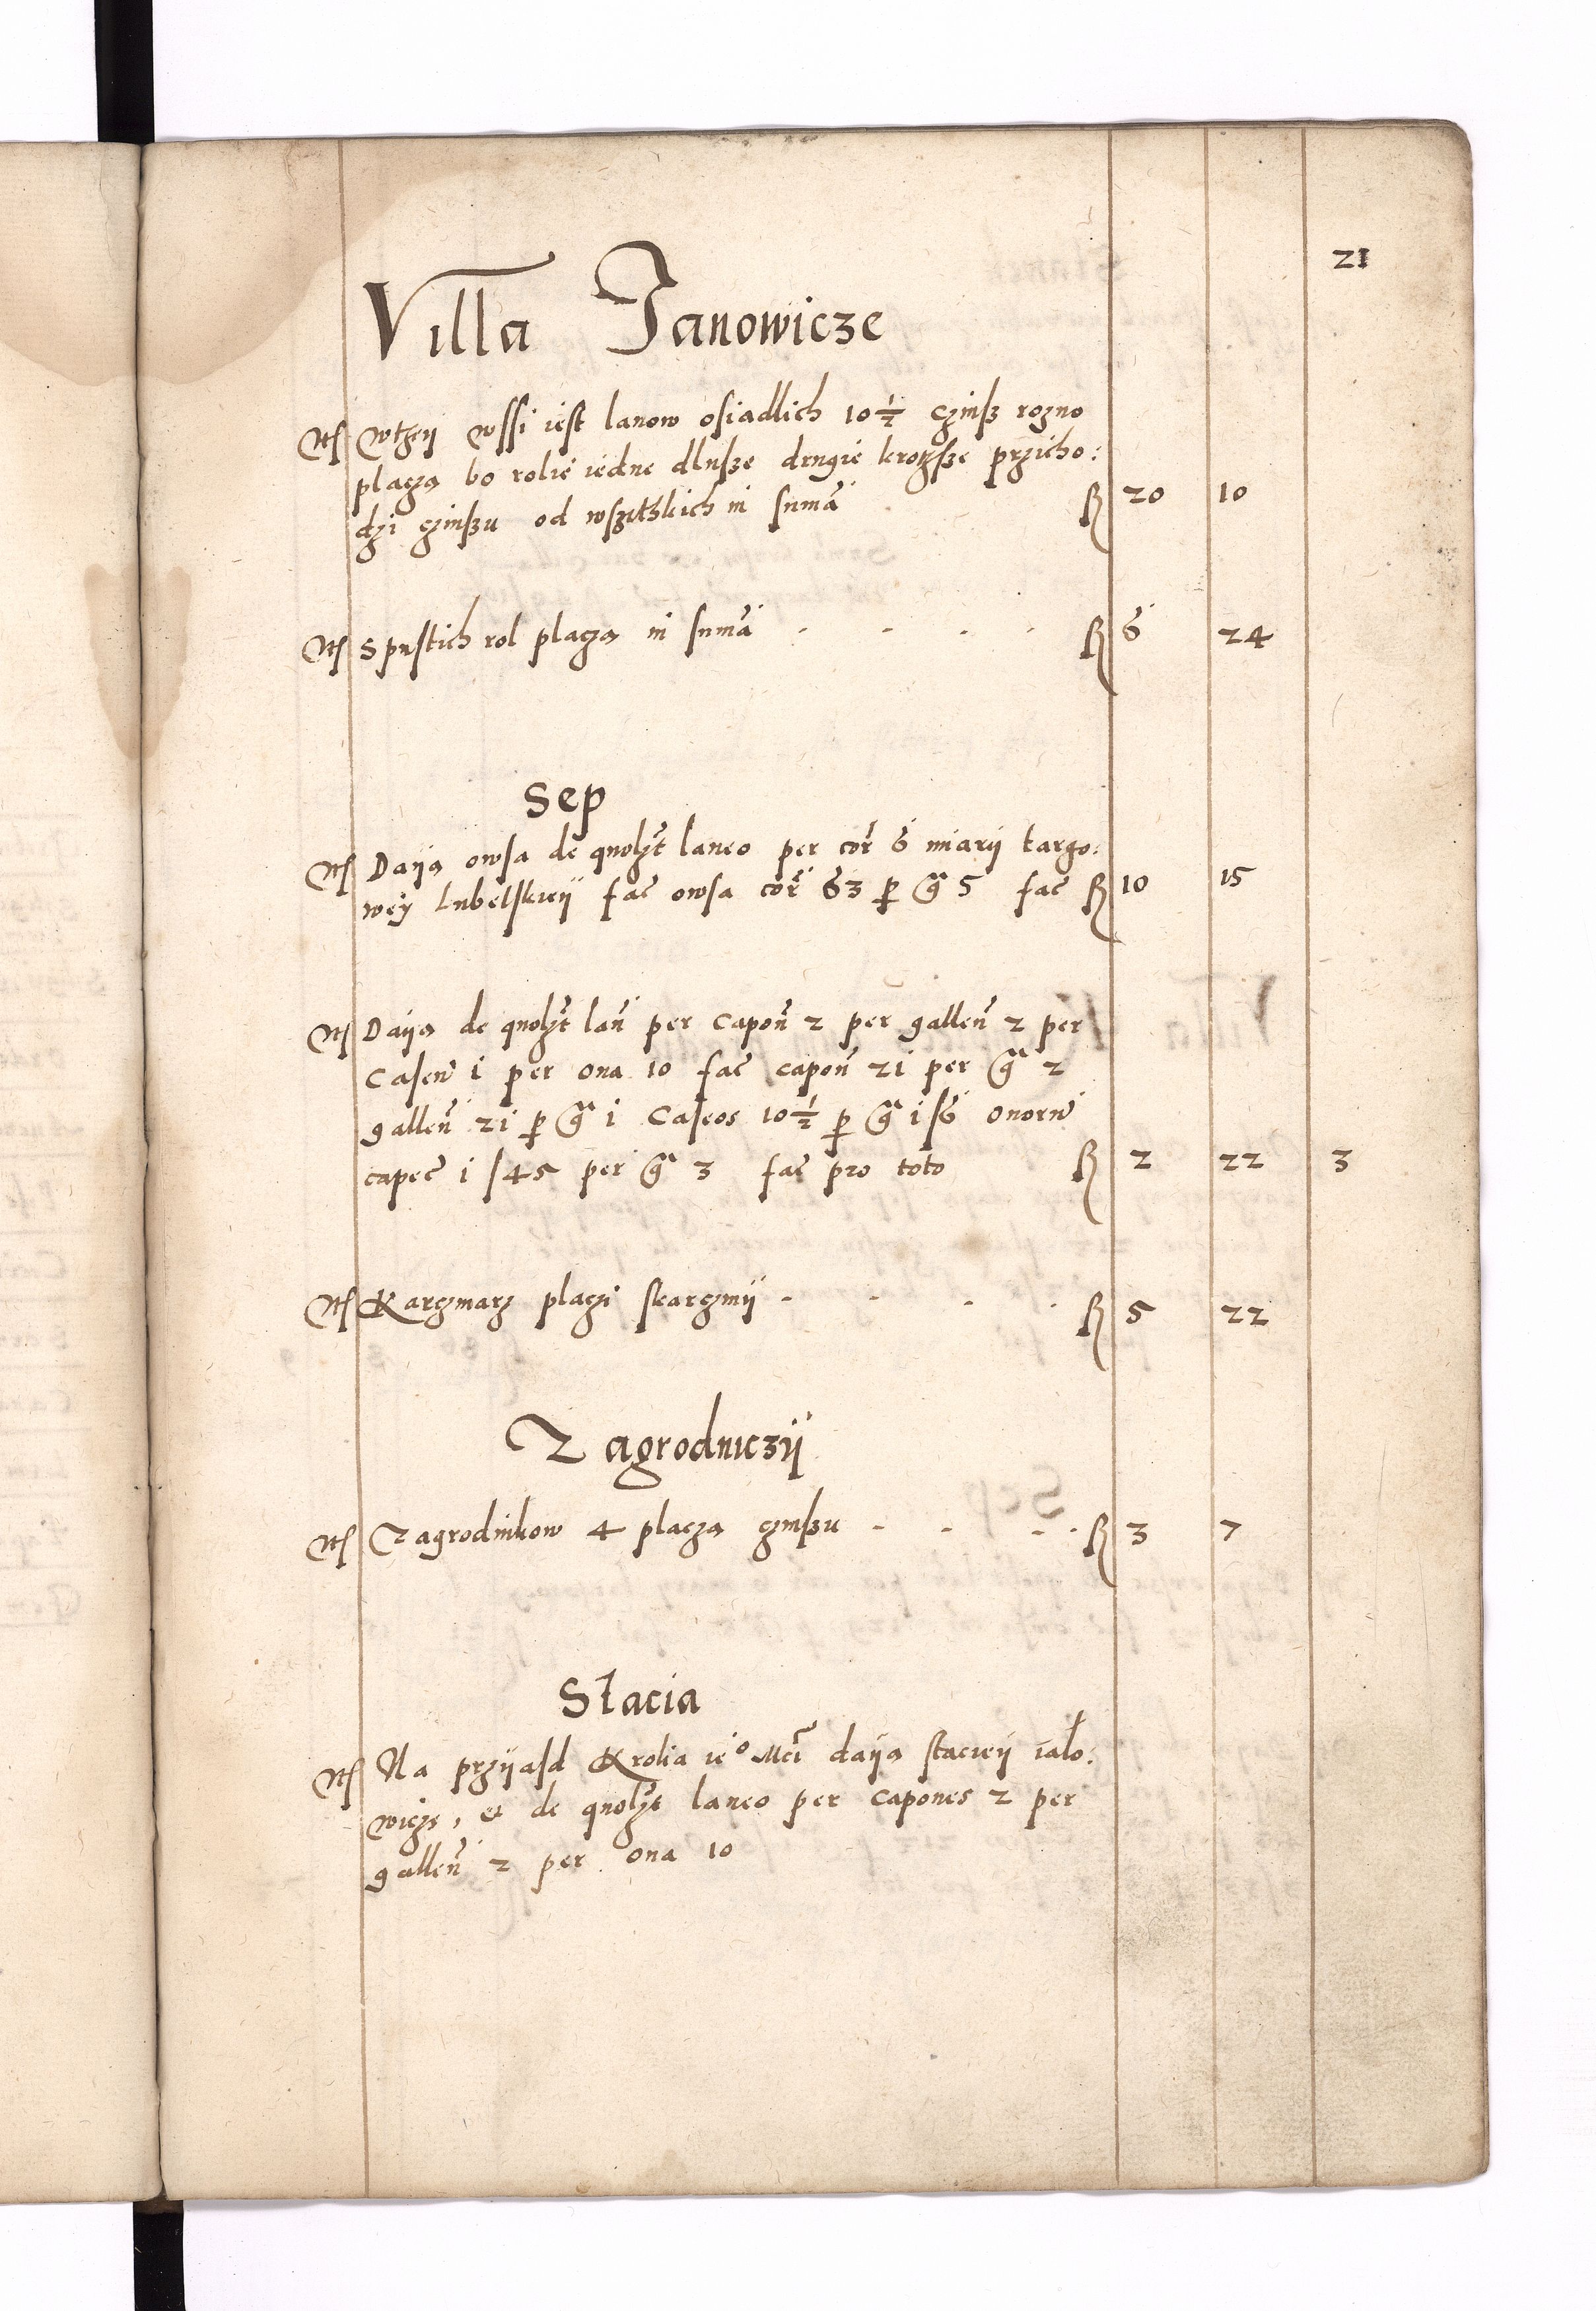 21
Villa Janowicze
Itē Wtheÿ wssi iest lanow osiadlich 10½ Czinsz rozno
placzą bo rolie iedne dlusze drugie krotsze przicho:
dzi czinszu od wszitskich in sumā fl 20 10
Itē Spustich rol placzą in sumā fl 6 24
Sep
Itē Daÿą owsa de quolzt laneo per cor 6 miarÿ targo:
weÿ Lubelskieÿ fac owsa cor 63 p gr 5 fac fl 10 15
Itē Daÿą de quolzt lan per Capon 2 per gallen 2 per
Caseū 1 per oua 10 fac capon 21 per gr 2
gallen 21 p gr 1 Caseos 10½ p gr 1/6 ouorū
capec 1/45 per gr 3 fac pro toto fl 2 22 3
Itē Karczmarz placzi skarczmÿ fl 5 22
Zagrodniczÿ
Itē Zagrodnikow 4 placzą czinszu fl 3 7
Stacia
Itē Na przÿasd Krolia ieo Mci daÿą stacieÿ iało:
wiczę, et de quolzt laneo per capones 2 per
gallen 2 per oua 10